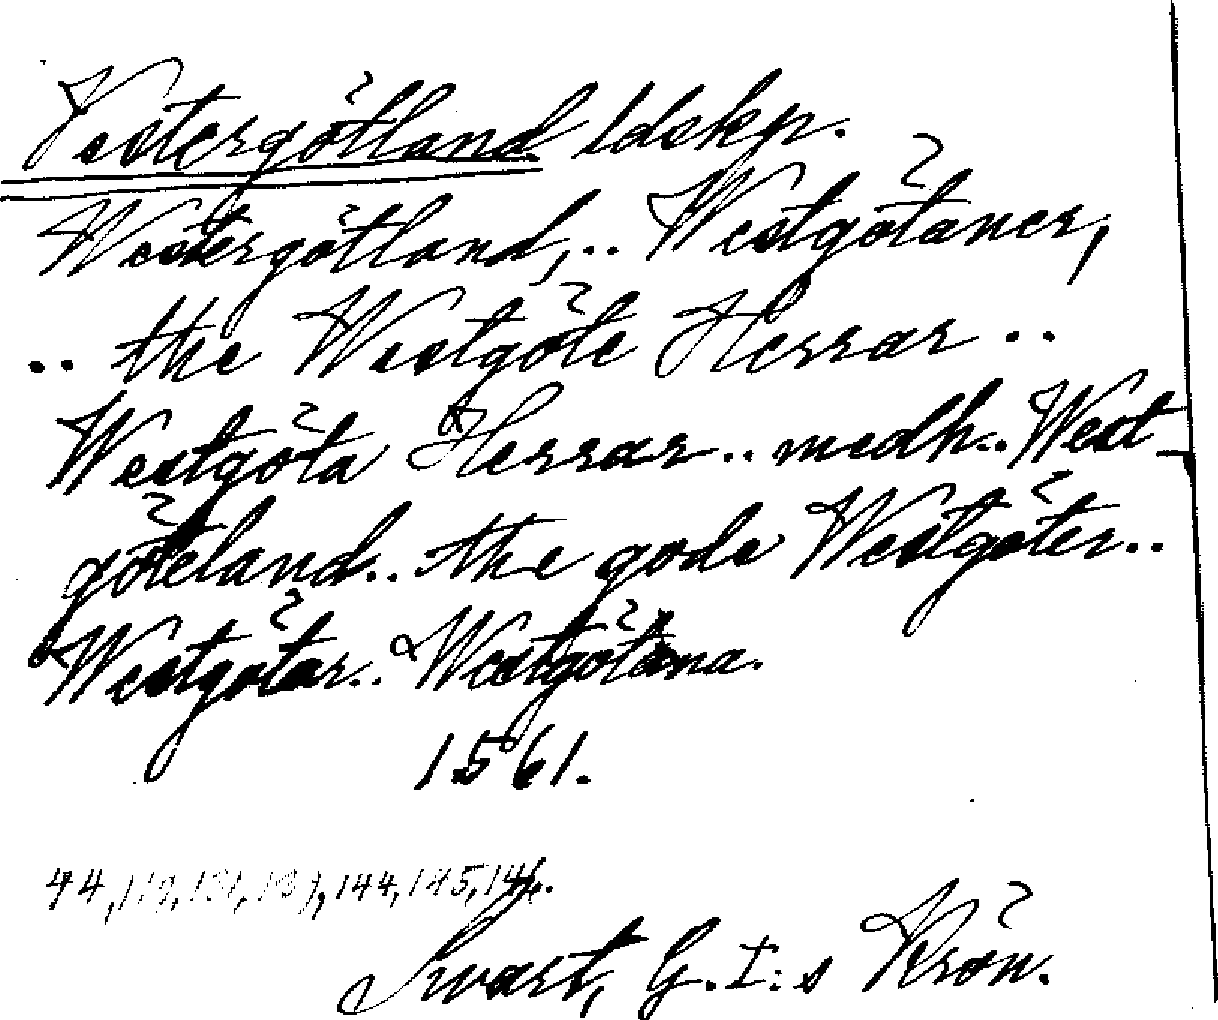 Vestergötland ldskp.
Westergötland,.. Westgötaner,
.. the Westgöte Herrar ..
Westgöta Herrar .. medh.. West-
göteland.. the gode Westgöter..
Westgötar.. Westgötana.
1561.
44, 119, 131, 144, 145, 146.
Swart, G. I:s Krön.